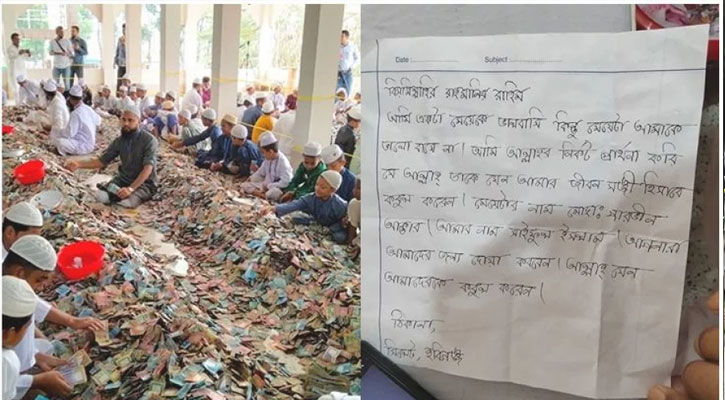 Date :.................... Subject :....................
বিসমিল্লাহির রাহমানির রাহিম
আমি একটা মেয়েকে ভালবাসি কিন্তু মেয়েটা আমাকে
ভালো বাসে না। আমি আল্লাহর নিকট প্রার্থনা করি
যে আল্লাহ্ তাকে যেন আমার জীবন সঙ্গী হিসাবে
কবুল করেন। মেয়েটার নাম মোছাঃ শারমীন
আক্তার। আমার নাম সাইফুল ইসলাম। আপনারা
আমাদের জন্য দোয়া করবেন। আল্লাহ্ যেন
আমাদেরকে কবুল করেন।
ঠিকানা,
সিলেট, হবিগঞ্জ